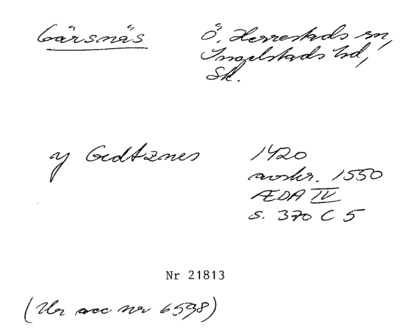 Gärsnäs
Ö. Herrestads sn,
Ingelstads hd,
Sk.
y Gedtznes
1420
avskr. 1550
ÆDA IV
s. 370 C 5
Nr 21813
(Ur acc nr 6598)